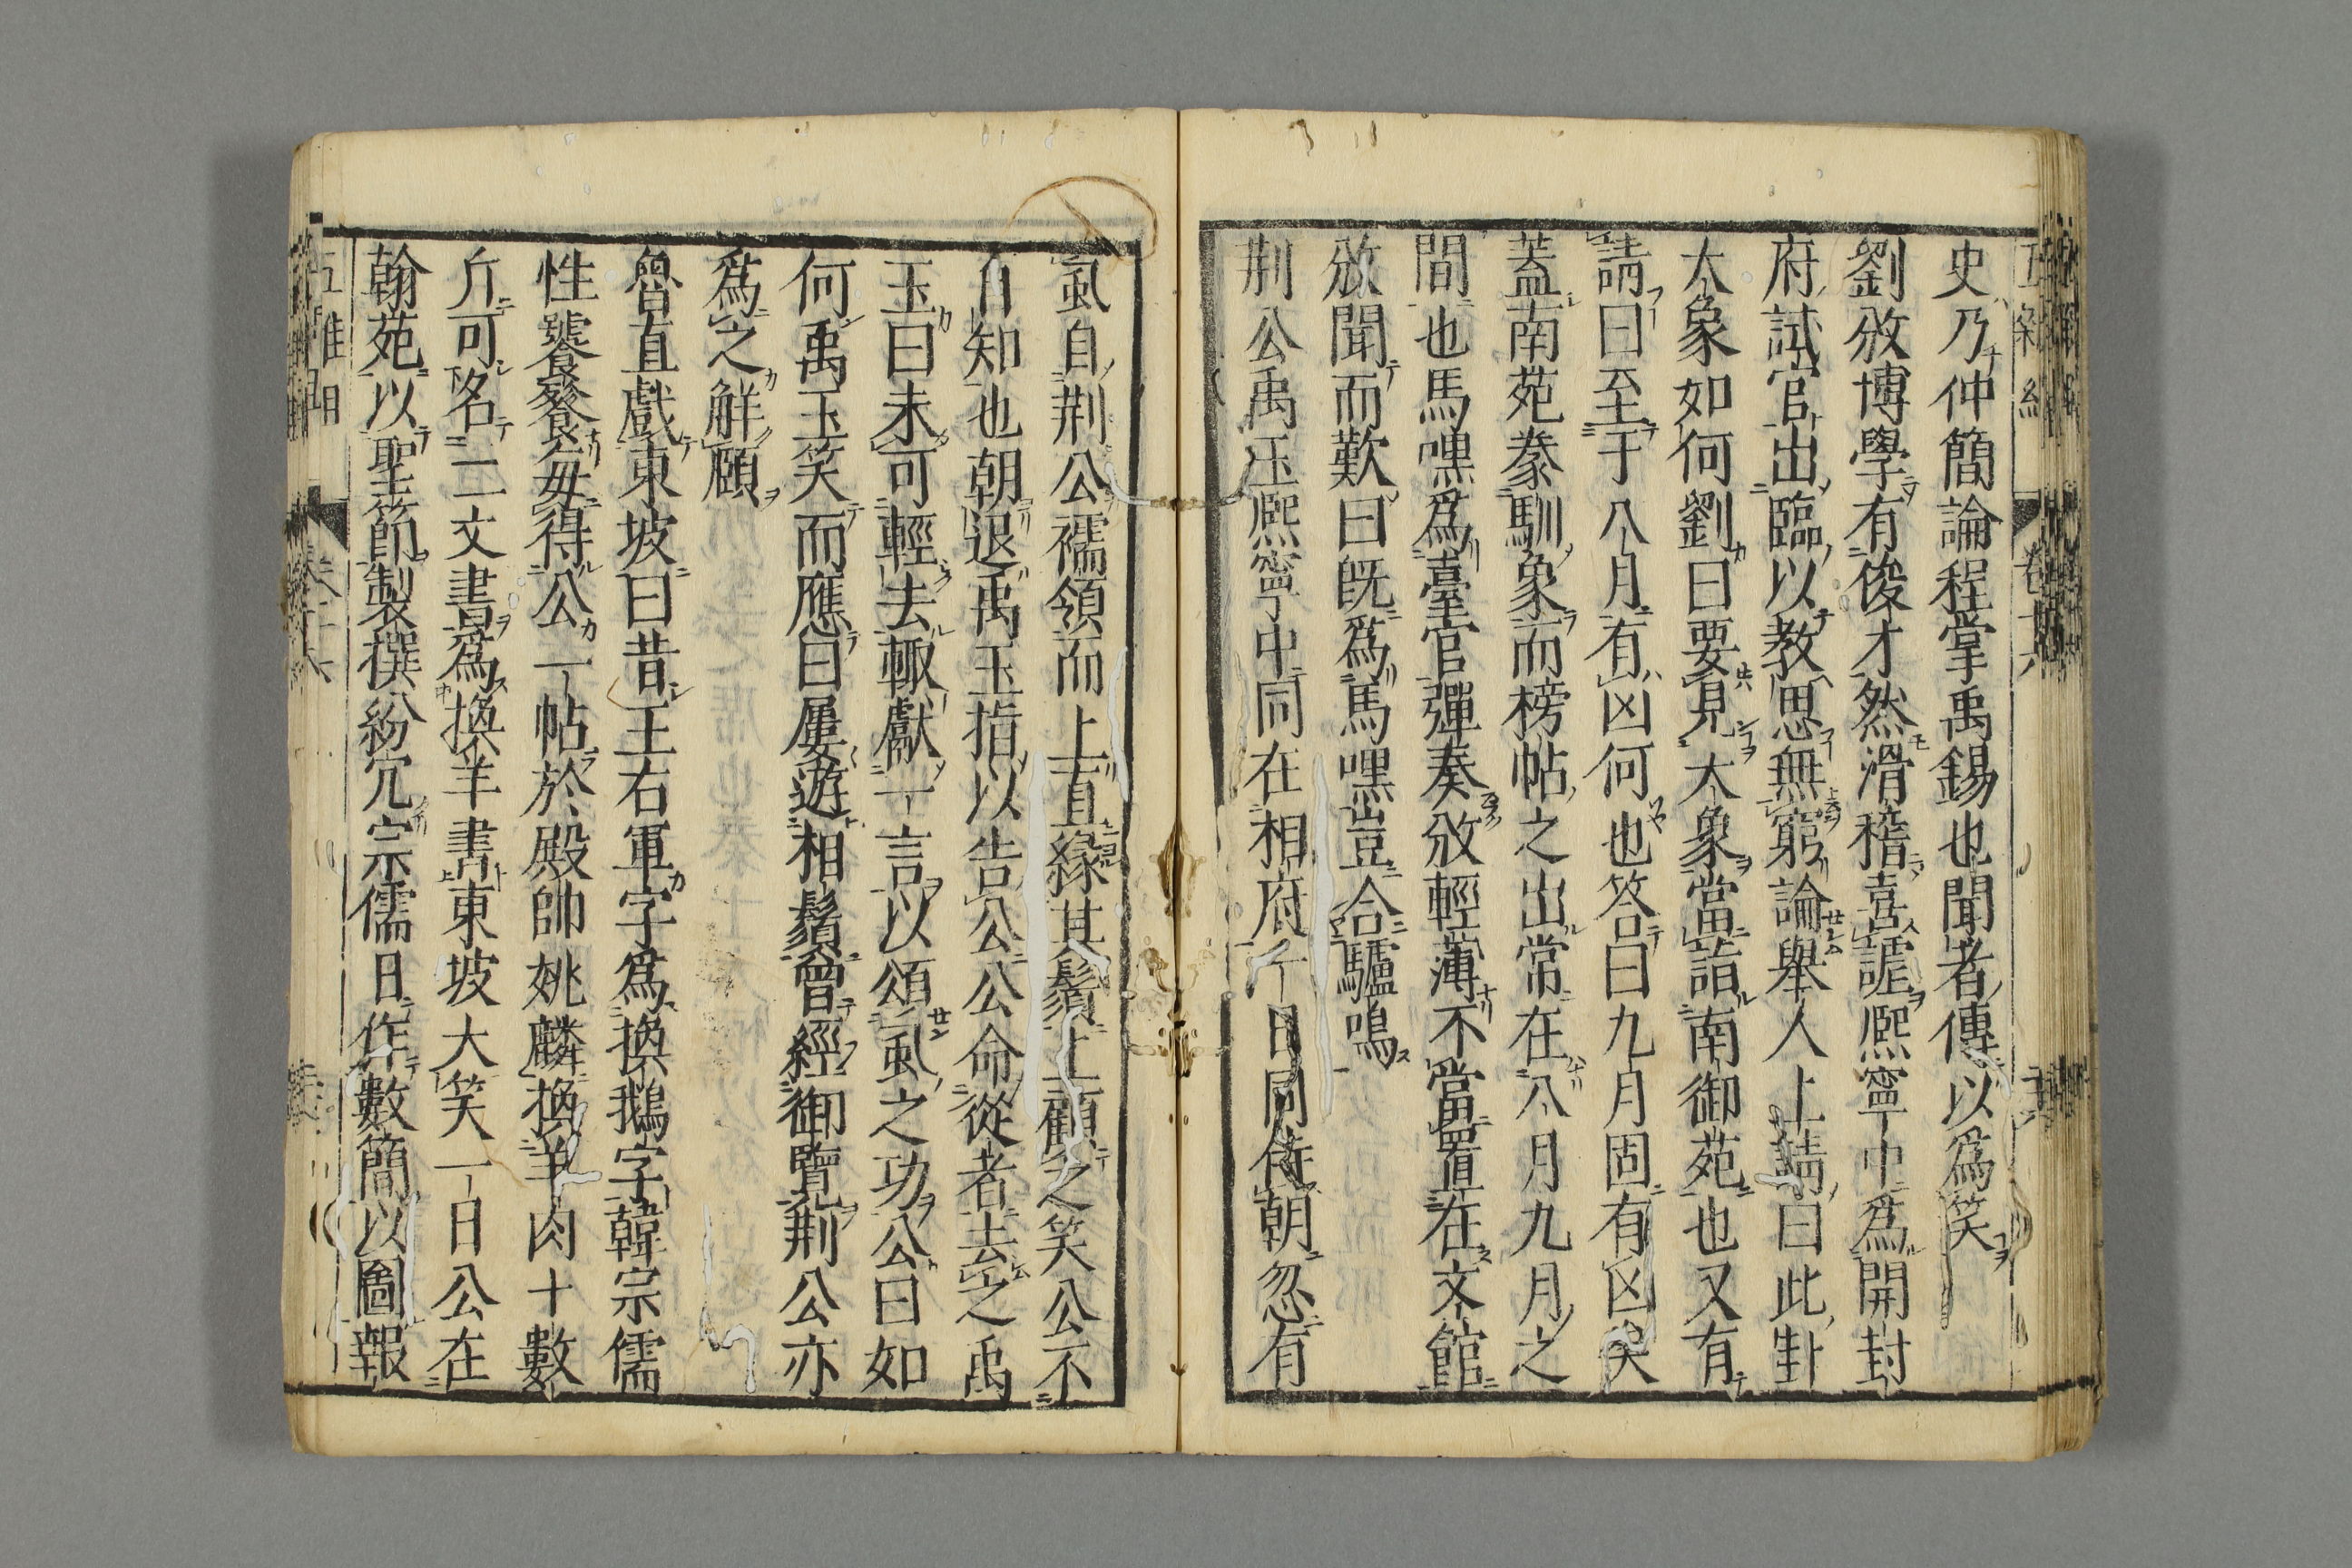 史乃仲簡論程掌禹錫也聞者傳以爲笑
劉攽博學有俊才然滑稽喜謔熈寧中爲開封
府試官出臨以教思無窮論舉人上請曰此卦
大象如何劉曰要見大象當詣南御苑也又有
請曰至于八月有凶何也答曰九月固有凶矣
蓋南苑豢馴象而榜帖之出常在八月九月之
間也馬嘿爲臺官彈奏攽輕薄不當置在文館
攽聞而歎曰旣爲馬嘿豈合驢鳴
荆公禹玉熈寧中同在相府一日同侍朝忽有
虱自荆公襦領而上直緣其鬚上顧之笑公不
自知也朝退禹玉指以告公公命從者去之禹
玉曰未可輕去輙獻一言以頌虱之功公曰如
何禹玉笑而應曰屢遊相鬚曾經御覽荆公亦
爲之觧頤
魯直戲東坡曰昔王右軍字爲換鵝字韓宗儒
性饕餮每得公一帖於殿帥姚麟換羊肉十數
斤可名二丈書爲換羊書東坡大笑一日公在
翰苑以聖節製撰紛冗宗儒日作數簡以圖報